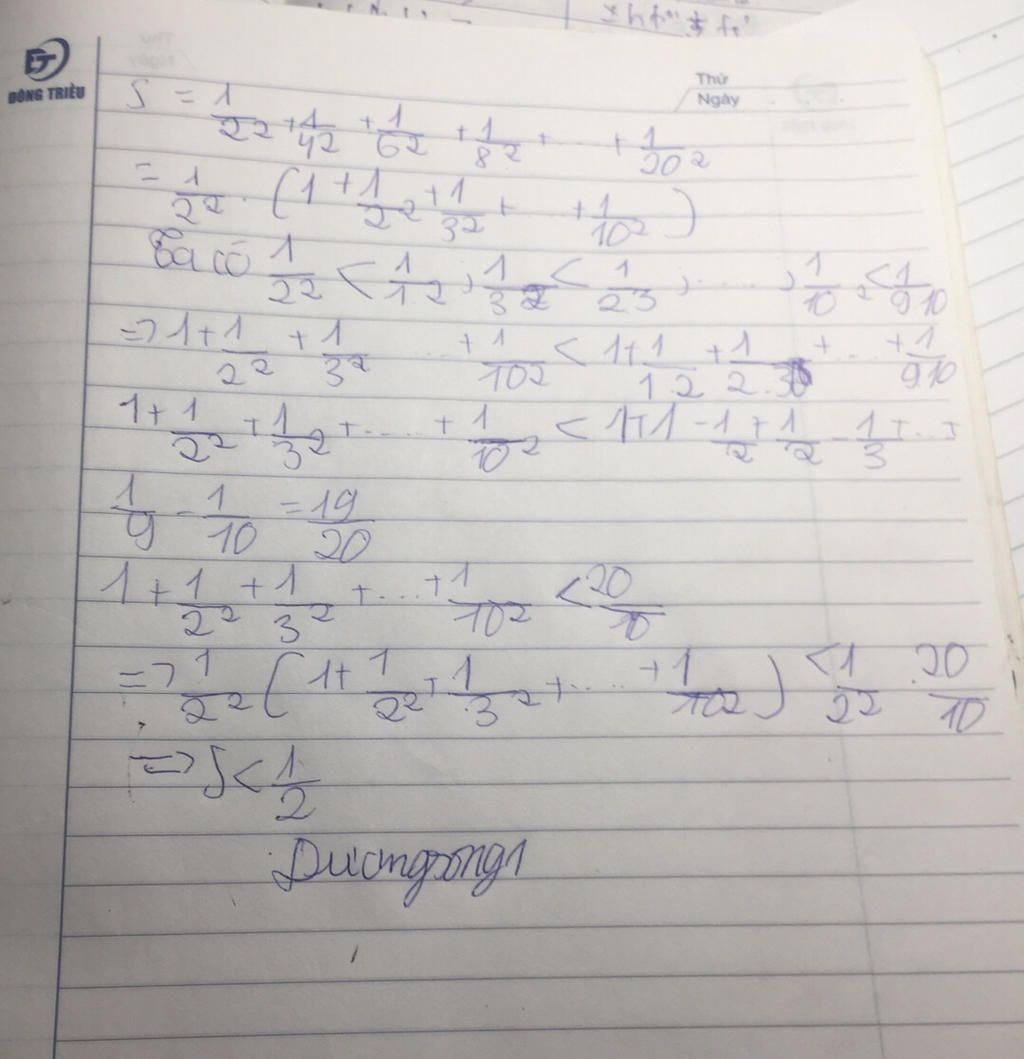 ĐÔNG TRIỀU
Thứ
Ngày
S = 1/2² + 1/4² + 1/6² + 1/8² + ... + 1/20²
= 1/2² . (1 + 1/2² + 1/3² + ... + 1/10²)
Ta có 1/2² < 1/1 2 ; 1/3² < 1/2 3 ; ..... ; 1/10² < 1/9 10
=> 1 + 1/2² + 1/3² ... + 1/10² < 1 + 1/1.2 + 1/2.3 + ... + 1/9 10
1 + 1/2² + 1/3² + .... + 1/10² < 1 + 1 - 1/2 + 1/2 - 1/3 + .. +
1/9 - 1/10 = 19/20
1 + 1/2² + 1/3² + ... + 1/10² < 20/10
=> 1/2² (1 + 1/2² + 1/3² + ..... + 1/10²) < 1/2² . 20/10
=> S < 1/2